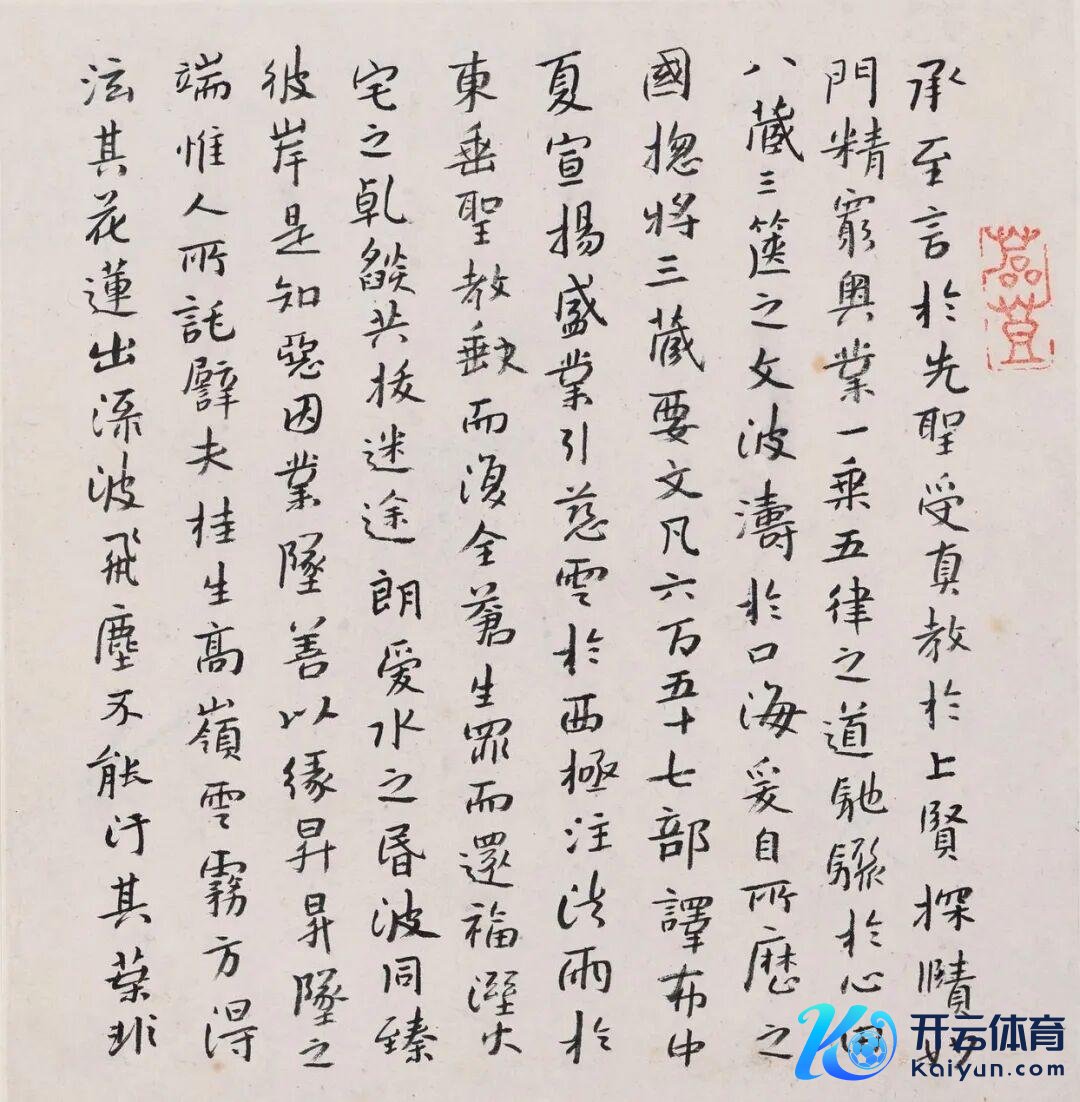 承至言於先聖受真教於上賢探賾妙
門精窮奧業一乘五律之道馳驟於心田
八藏三篋之文波濤於口海爰自所歷之
國揔將三藏要文凡六百五十七部譯布中
夏宣揚盛業引慈雲於西極注法雨於
東垂聖教缺而復全蒼生罪而還福溼火
宅之乹燄共拔迷途朗愛水之昏波同臻
彼岸是知惡因業墜善以緣昇昇墜之
端惟人所託譬夫桂生高嶺雲霧方得
泫其花蓮出淥波飛塵不能汙其葉非
开云体育
Kaiyun.com